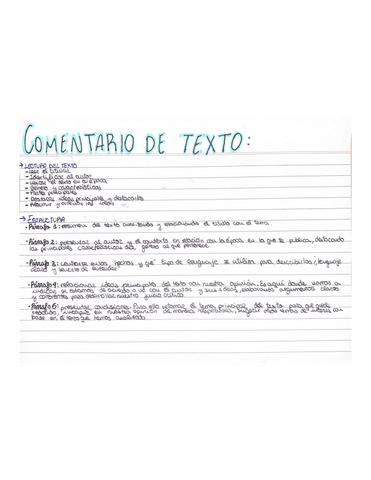 COMENTARIO DE TEXTO:
→ LECTURA DEL TEXTO
- leer el titular
- Identificar al autor
- Ubicar el texto en su época
- género y características
- Partes principales
- Destacar ideas principales y destacarlas
- Resumir y enlazar las ideas
→ ESTRUCTURA
• Párrafo 1: resumen del texto relacionando el título con el tema.
• Párrafo 2: presentar al autor y el contexto en relación con la época en la que se publica, destacando
las principales características del género al que pertenece
• Párrafo 3: fechas y qué tipo de lenguaje se utiliza para describirlos (lenguaje
claro y sencillo de entender)
• Párrafo 4: relacionar ideas principales del texto con nuestra opinión. Es aquí donde vamos a
indicar si estamos de acuerdo o no con el autor y sus ideas, elaboramos argumentos claros
y coherentes para desarrollar nuestro juicio crítico
• Párrafo 5: presentar conclusiones. Para ello retomar el tema principal del texto para que quede
nuestra opinión de manera respetuosa, sugerir otros temas de interés con
base en el texto que hemos analizado